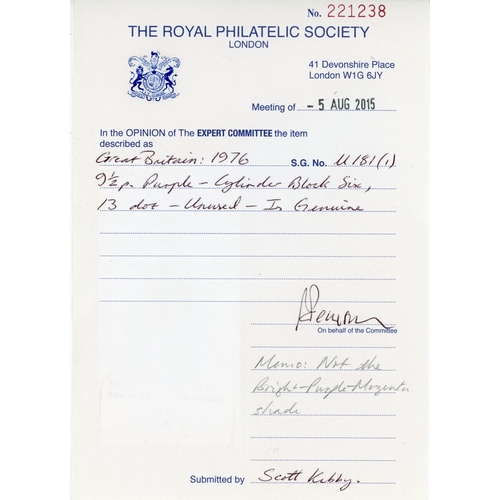 No. 221238
THE ROYAL PHILATELIC SOCIETY
LONDON
41 Devonshire Place
London W1G 6JY
Meeting of - 5 AUG 2015
In the OPINION of The EXPERT COMMITTEE the item
described as
Great Britain: 1976 S.G. No. U181(1)
9½p. Purple - Cylinder Block Six,
13 dot - Unused - Is Genuine
On behalf of the Committee
Memo: Not the
Bright-Purple-Magenta
shade
Submitted by Scott Kibby.